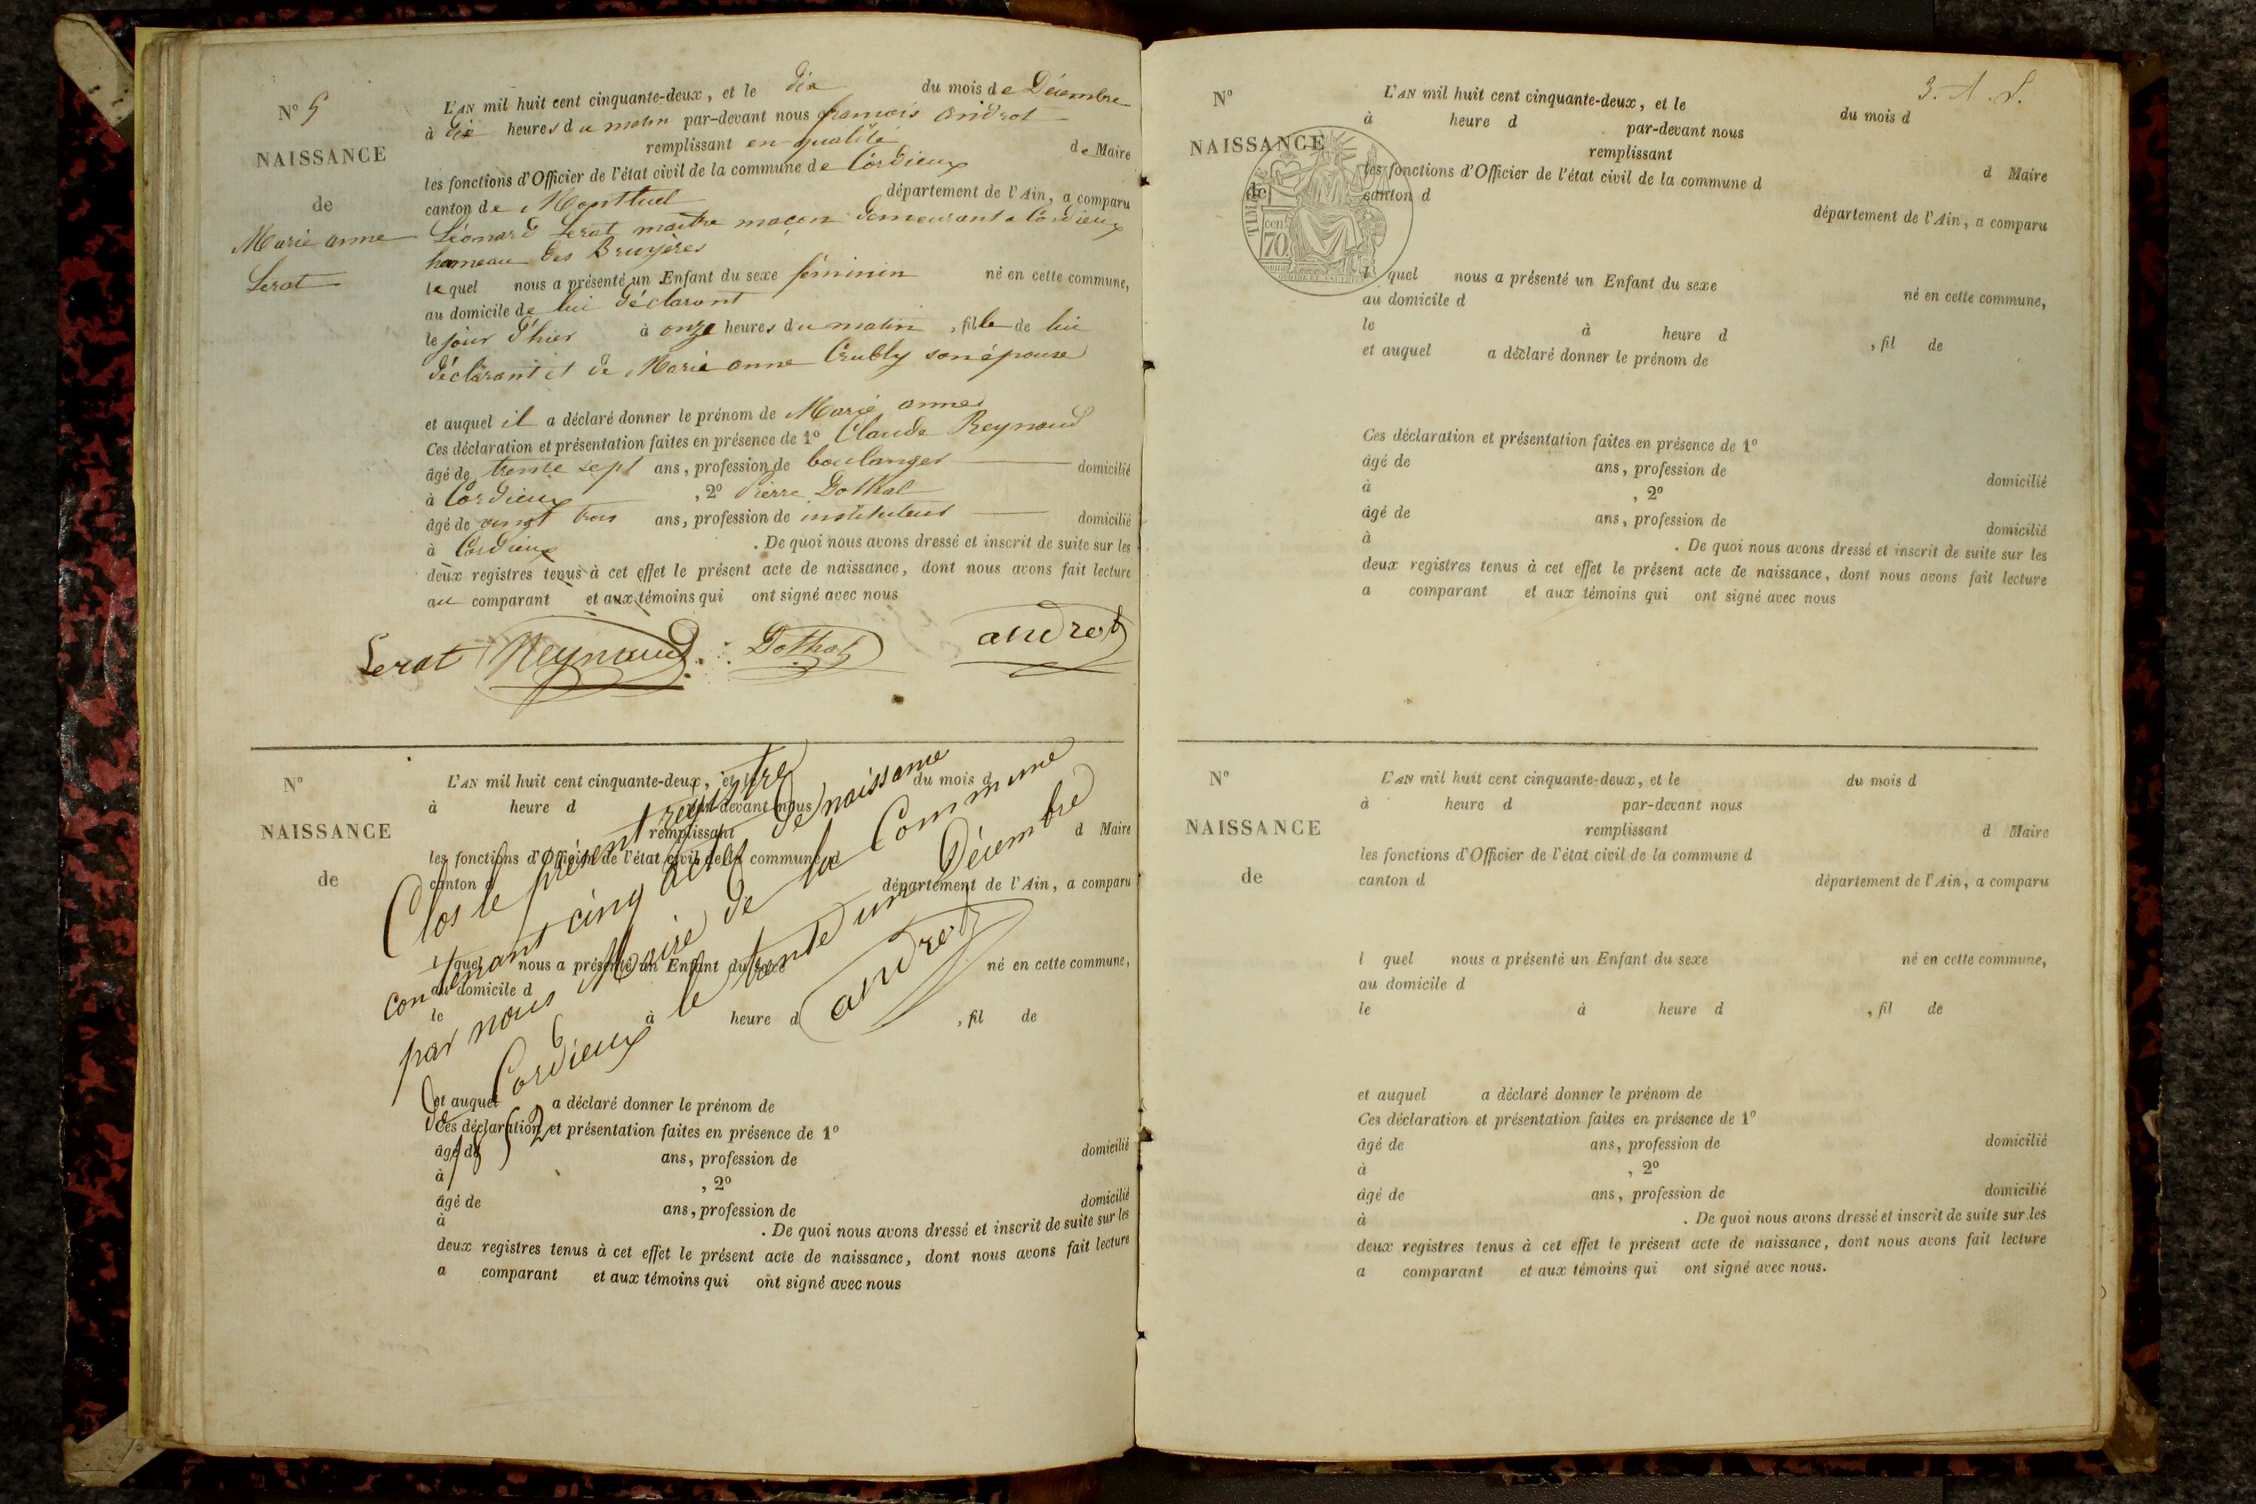 N° 5
NAISSANCE
de
Marie anne
Serat
L'AN mil huit cent cinquante-deux, et le dix du mois de Décembre
à dix heures du matin par-devant nous françois androt
remplissant en qualité de Maire
les fonctions d'Officier de l'état civil de la commune de Cordieux
canton de Montluel département de l'Ain, a comparu
Léonard Serat maître maçon demeurant a Cordieux
hameau des Bruyères
lequel nous a présenté un Enfant du sexe féminin né en cette commune,
au domicile de lui déclarant
le jour d'hier à onze heures du matin, fille de lui
déclarant et de Marie anne Crubly son épouse
et auquel il a déclaré donner le prénom de Marie anne
Ces déclaration et présentation faites en présence de 1° Claude Reynaud
âgé de trente sept ans, profession de boulanger domicilié
à Cordieux, 2° Pierre Dothal
âgé de vingt trois ans, profession de instituteur domicilié
à Cordieux. De quoi nous avons dressé et inscrit de suite sur les
deux registres tenus à cet effet le présent acte de naissance, dont nous avons fait lecture
au comparant et aux témoins qui ont signé avec nous
Serat Reynaud Dothal androt
N°
NAISSANCE
de
L'AN mil huit cent cinquante-deux, et le du mois d
à heure d par-devant nous
remplissant d Maire
les fonctions d'Officier de l'état civil de la commune d
canton d département de l'Ain, a comparu
l quel nous a présenté un Enfant du sexe né en cette commune,
au domicile d
le à heure d , fil de
et auquel a déclaré donner le prénom de
Ces déclaration et présentation faites en présence de 1°
âgé de ans, profession de domicilié
à , 2°
âgé de ans, profession de domicilié
à . De quoi nous avons dressé et inscrit de suite sur les
deux registres tenus à cet effet le présent acte de naissance, dont nous avons fait lecture
a comparant et aux témoins qui ont signé avec nous
Clos le présent registre
contenant cinq actes de naissance
par nous Maire de la Commune
de Cordieux le trente un Décembre
1852
androt
3. A. S.
N°
NAISSANCE
de
TIMBRE
cen
70
L'AN mil huit cent cinquante-deux, et le du mois d
à heure d par-devant nous
remplissant d Maire
les fonctions d'Officier de l'état civil de la commune d
canton d département de l'Ain, a comparu
l quel nous a présenté un Enfant du sexe né en cette commune,
au domicile d
le à heure d , fil de
et auquel a déclaré donner le prénom de
Ces déclaration et présentation faites en présence de 1°
âgé de ans, profession de domicilié
à , 2°
âgé de ans, profession de domicilié
à . De quoi nous avons dressé et inscrit de suite sur les
deux registres tenus à cet effet le présent acte de naissance, dont nous avons fait lecture
a comparant et aux témoins qui ont signé avec nous
N°
NAISSANCE
de
L'AN mil huit cent cinquante-deux, et le du mois d
à heure d par-devant nous
remplissant d Maire
les fonctions d'Officier de l'état civil de la commune d
canton d département de l'Ain, a comparu
l quel nous a présenté un Enfant du sexe né en cette commune,
au domicile d
le à heure d , fil de
et auquel a déclaré donner le prénom de
Ces déclaration et présentation faites en présence de 1°
âgé de ans, profession de domicilié
à , 2°
âgé de ans, profession de domicilié
à . De quoi nous avons dressé et inscrit de suite sur les
deux registres tenus à cet effet le présent acte de naissance, dont nous avons fait lecture
a comparant et aux témoins qui ont signé avec nous.